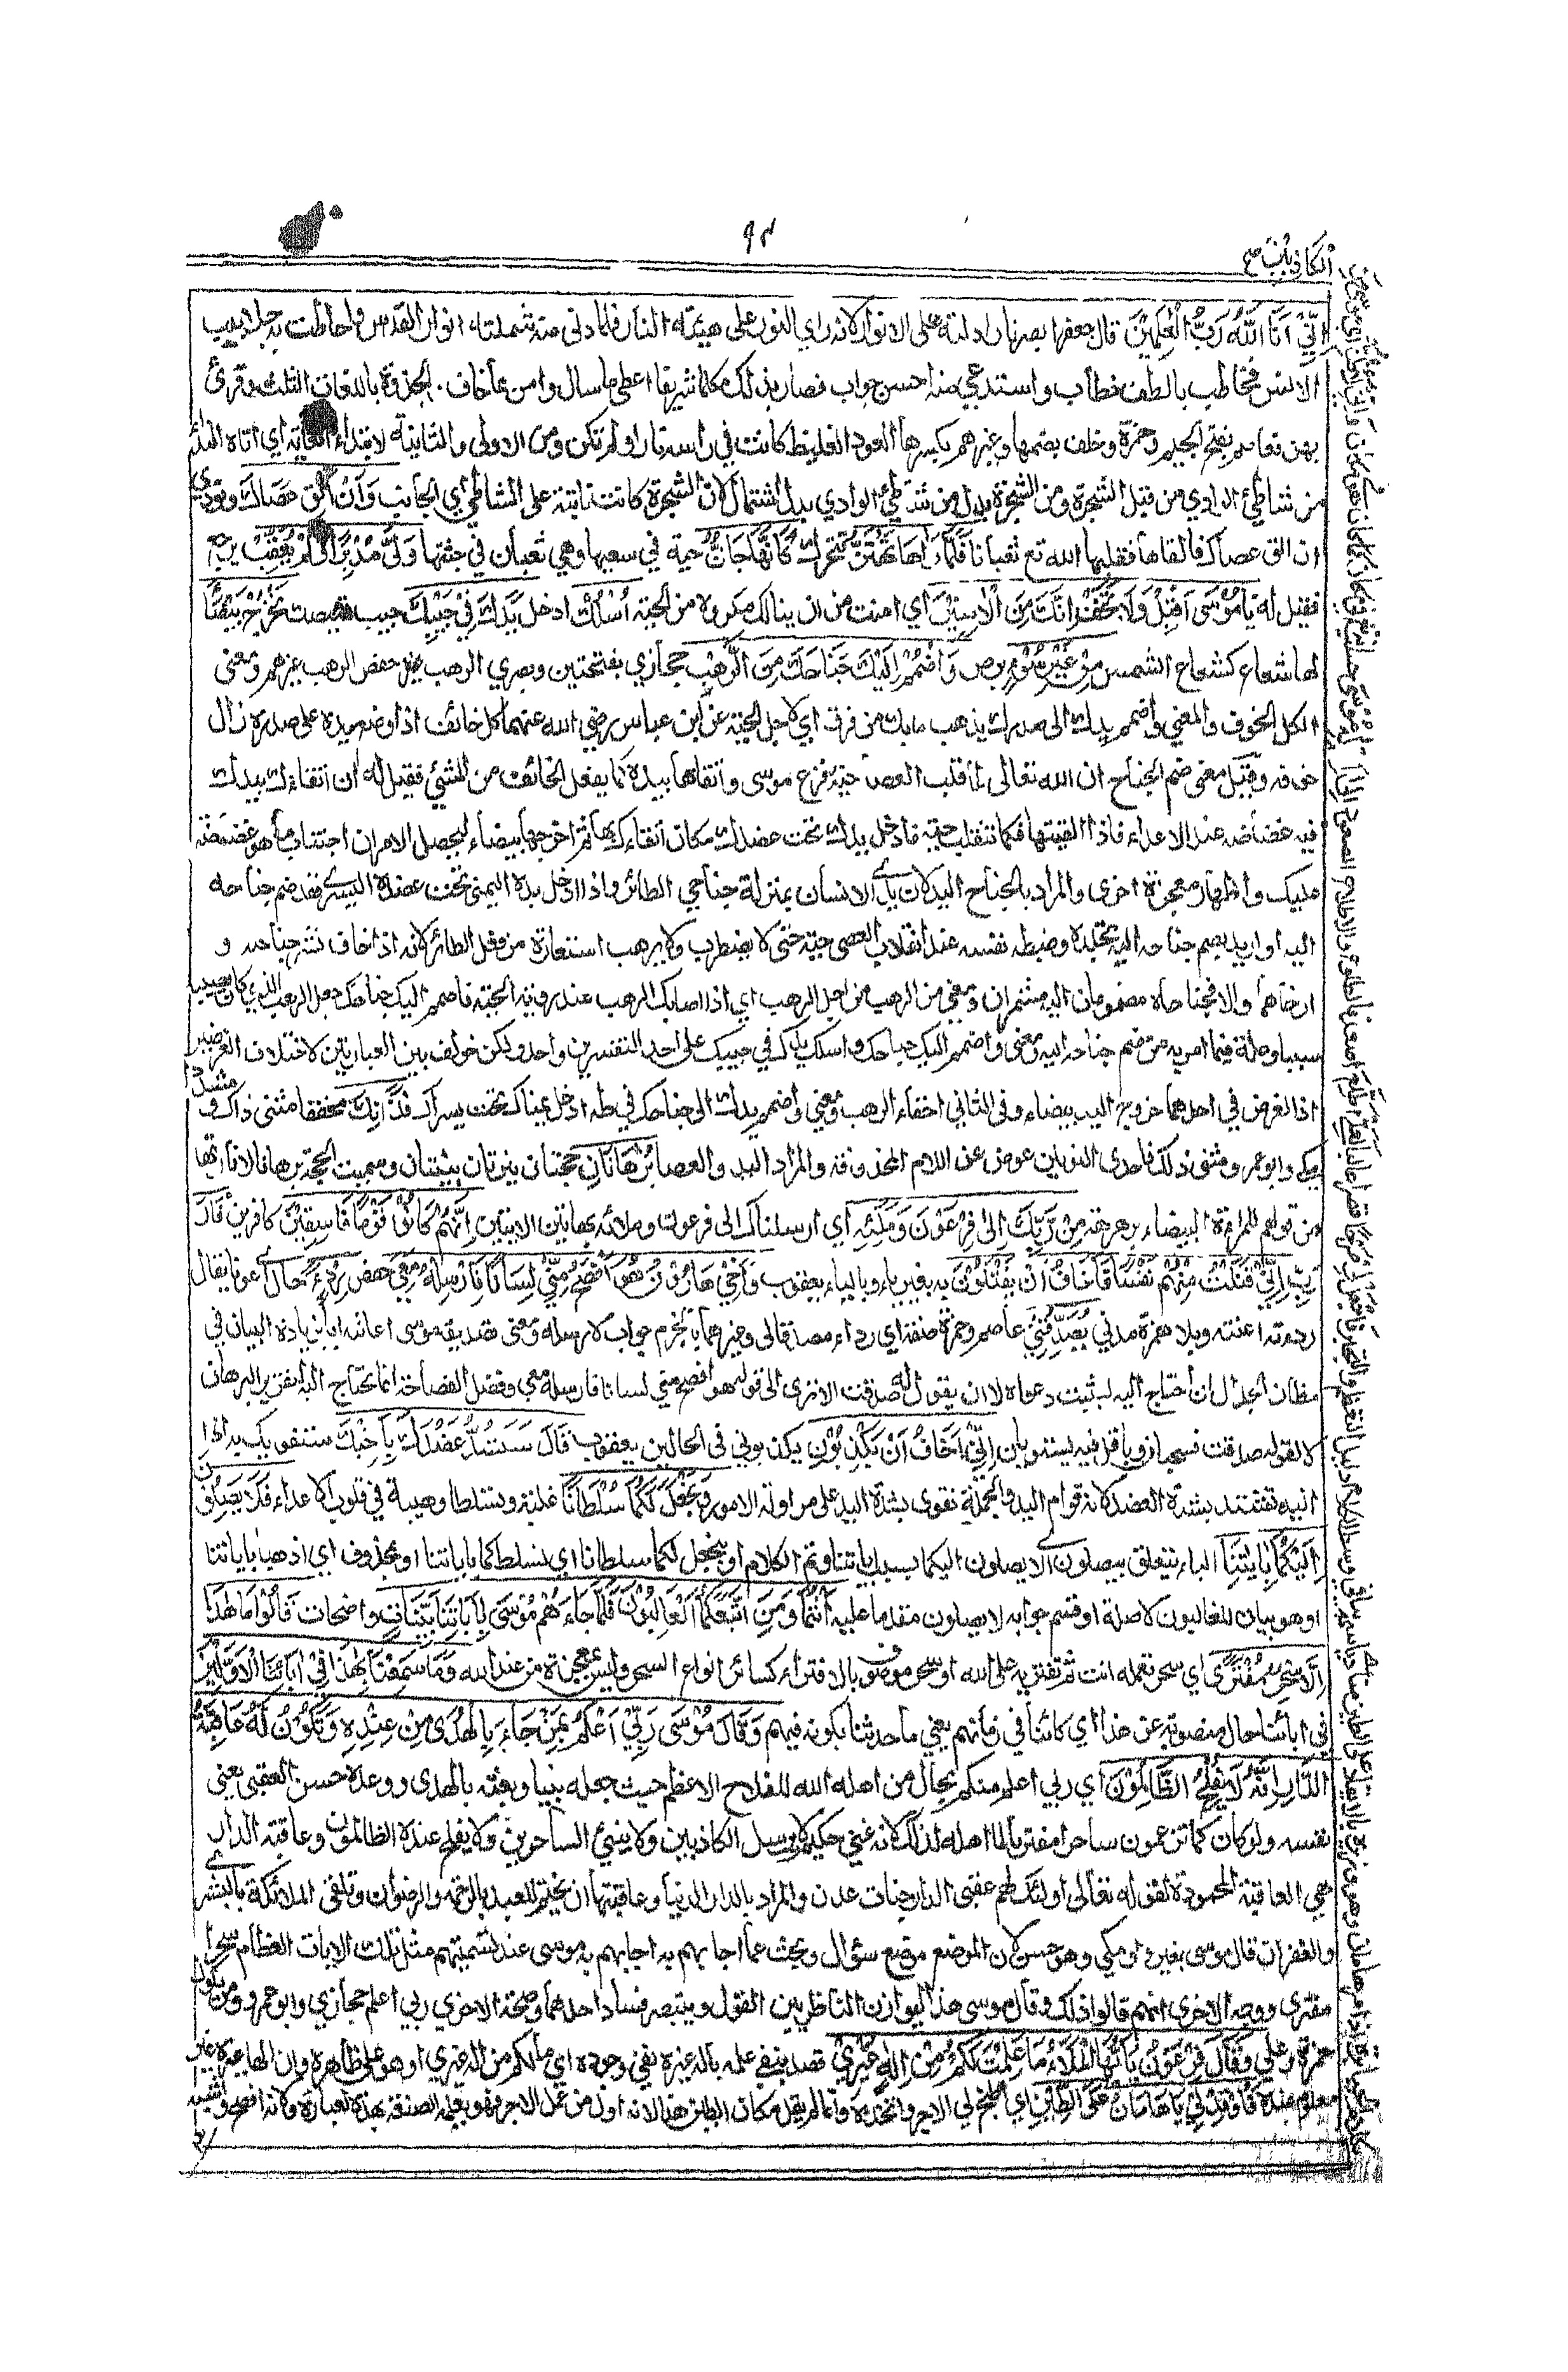 ٩٢
إِنِّيْ اَنَا اللّٰهُ رَبُّ الْعٰلَمِيْنَ قال جعفر ابصر نارا دلته على الانوار لانه راي النور على هيئة النار فلما دنى منه شملته انوار القدس واحاطت به جلابيب
الانس فخاطب بالطف خطاب واستدعي منه احسن جواب فصار بذلك مكلما شريفا اعطى ما سال وامن مما خاف الجذوة باللغات الثلث وقرئ
بهن فعاصم بفتح الجيم وحمزة وخلف بضمها وغيرهم بكسرها العود الغليظ كانت في راسه نار او لم تكن ومن الاولى والثانية لابتداء الغاية اي اتاه النداء
من شاطئ الوادي من قبل الشجرة ومن الشجرة بدل من شاطئ الوادي بدل اشتمال لان الشجرة كانت نابتة على الشاطئ اي الجانب وَاَنْ اَلْقِ عَصَاكَ ونودي
ان الق عصاك فالقاها فقلبها الله تع ثعبانا فَلَمَّا رَاٰهَا تَهْتَزُّ تتحرك كَاَنَّهَا جَانٌّ حية في سعيها وهي ثعبان في جثتها وَلّٰى مُدْبِرًا وَّلَمْ يُعَقِّبْ يرجع
فقيل له يَا مُوْسٰى اَقْبِلْ وَلَا تَخَفْ اِنَّكَ مِنَ الْاٰمِنِيْنَ اي امنت من ان ينالك مكروه من الحية اُسْلُكْ ادخل يَدَكَ فِيْ جَيْبِكَ جيب قميصك تَخْرُجْ بَيْضَاءَ
لها شعاع كشعاع الشمس مِنْ غَيْرِ سُوْءٍ برص وَاضْمُمْ اِلَيْكَ جَنَاحَكَ مِنَ الرَّهْبِ حجازي بفتحتين وبصري الرهب حفص الرهب غيرهم ومعنى
الكل الخوف والمعني واضمم يدك الى صدرك يذهب ما بك من فرق اي لاجل الحية عن ابن عباس رضي الله عنهما كل خائف اذا وضع يده على صدره زال
خوفه وقيل معنى ضم الجناح ان الله تعالى لما قلب العصا حية فزع موسى واتقاها بيده كما يفعل الخائف من الشئي فقيل له ان اتقاءك بيدك
فيه غضاضة عند الاعداء فاذا القيتها فكما تنقلب حية فادخل يدك تحت عضدك مكان اتقاءك بها ثم اخرجها بيضاء ليحصل الامران اجتناب ما هو غضاضة
عليك واظهار معجزة اخرى والمراد بالجناح اليد لان يدي الانسان بمنزلة جناحي الطائر واذا ادخل يده اليمنى تحت عضده اليسرى فقد ضم جناحه
اليه او اريد بضم جناحه اليه تجلده وضبطه نفسه عند انقلاب العصى حية حتى لا يضطرب ولا يرهب استعارة من فعل الطائر لانه اذا خاف نشر جناحيه و
ارخاهما والا فجناحاه مضمومان اليه مشمران ومعنى من الرهب من اجل الرهب اي اذا اصابك الرهب عند رؤية الحية فاضمم اليك جناحك جعل الرهب الذي كان يصيبه
سببا وعلة فيما امر به من ضم جناحه اليه ومعنى واضمم اليك جناحك واسلك يدك في جيبك على احد التفسيرين واحد ولكن خولف بين العبارتين لاختلاف الغرضين
اذ الغرض في احدهما خروج اليد بيضاء وفي الثاني اخفاء الرهب ومعني واضمم يدك الى جناحك في طه ادخل يمناك تحت يسراك فَذٰنِكَ مخففا مثنى ذاك و مشددا
مكي وابو عمرو مثنى ذلك فاحدى النونين عوض عن اللام المحذوفة والمراد اليد والعصا بُرْهَانَانِ حجتان نيرتان بينتان وسميت الحجة برهانا لانارتها
من قولهم للمراة البيضاء برهرهة مِنْ رَّبِّكَ اِلٰى فِرْعَوْنَ وَمَلَئِهٖ اي ارسلناك الى فرعون وملائه بهاتين الايتين اِنَّهُمْ كَانُوْا قَوْمًا فَاسِقِيْنَ كافرين قَالَ
رَبِّ اِنِّيْ قَتَلْتُ مِنْهُمْ نَفْسًا فَاَخَافُ اَنْ يَقْتُلُوْنِ به بغير ياء وبالياء يعقوب وَاَخِيْ هَارُوْنُ هُوَ اَفْصَحُ مِنِّيْ لِسَانًا فَاَرْسِلْهُ مَعِيَ حفص رِدْءًا حال اي عونا يقال
ردءته اعنته وبلا همزة مدني يُصَدِّقُنِيْ عاصم وحمزة صفة اي رداء مصدقا لى وغيرهما بالجزم جواب لارسله ومعنى تصديقه موسى اعانته اياه بزيادة البيان في
مظان الجدال ان احتاج اليه ليثبت دعواه لا ان يقول له صدقت الا ترى الى قوله هو افصح مني لسانا فارسله معي وفضل الفصاحة انما يحتاج اليه لتقرير البرهان
لا لقوله صدقت فسحبان وباقل فيه يستويان اِنِّيْ اَخَافُ اَنْ يُّكَذِّبُوْنِ يكذبوني في الحالين يعقوب قَالَ سَنَشُدُّ عَضُدَكَ بِاَخِيْكَ سنقويك به اذا
اليد تشتد بشدة العضد لانه قوام اليد والجملة تقوى بشدة اليد على مزاولة الامور وَنَجْعَلُ لَكُمَا سُلْطَانًا غلبة وتسلطا وهيبة في قلوب الاعداء فَلَا يَصِلُوْنَ
اِلَيْكُمَا بِاٰيٰتِنَا الباء يتعلق بيصلون اي لا يصلون اليكما بسبب اياتنا وتم الكلام او بنجعل لكما سلطانا اي نسلطكما باياتنا او بمحذوف اي اذهبا باياتنا
او هو بيان للغالبون لا صلة او قسم جوابه لا يصلون مقدما عليه اَنْتُمَا وَمَنِ اتَّبَعَكُمَا الْغَالِبُوْنَ فَلَمَّا جَاءَهُمْ مُوْسٰى بِاٰيَاتِنَا بَيِّنَاتٍ واضحات قَالُوْا مَا هٰذَا
اِلَّا سِحْرٌ مُّفْتَرًى اي سحر تعمله انت ثم تفتريه على الله او سحر موصوف بالافتراء كسائر انواع السحر وليس بمعجزة من عند الله وَمَا سَمِعْنَا بِهٰذَا فِيْ اٰبَائِنَا الْاَوَّلِيْنَ
في ابائنا حال منصوبة عن هذا اي كائنا في زمانهم يعني ما حدثنا بكونه فيهم وَقَالَ مُوْسٰى رَبِّيْ اَعْلَمُ بِمَنْ جَاءَ بِالْهُدٰى مِنْ عِنْدِهٖ وَتَكُوْنُ لَهٗ عَاقِبَةُ
الدَّارِ اِنَّهٗ لَا يُفْلِحُ الظَّالِمُوْنَ اي ربي اعلم منكم بحال من اهله الله للفلاح الاعظم حيث جعله نبيا وبعثه بالهدى ووعده حسن العقبى يعني
نفسه ولو كان كما تزعمون ساحرا مفتريا لما اهله لذلك لانه غني حكيم لا يرسل الكاذبين ولا ينبئ الساحرين ولا يفلح عنده الظالمون وعاقبة الدار
هي العاقبة المحمودة لقوله تعالى اولئك لهم عقبى الدار جنات عدن والمراد بالدار الدنيا وعاقبتها ان يختم للعبد بالرحمة والرضوان وتلقى الملائكة بالبشرى
والغفران قال موسى بغير واو مكي وهو حسن لان الموضع موضع سؤال وبحث عما اجابهم به موسى عند تسميتهم مثل تلك الايات العظام سحرا
مفترى ووجه الاخرى انهم قالوا ذلك وقال موسى هذا ليوازن الناظر بين القول ويتبصر فساد احدهما وصحة الاخرى ربي اعلم حجازي وابو عمرو ومن يكون
حمزة وعلي وَقَالَ فِرْعَوْنُ يَا اَيُّهَا الْمَلَاُ مَا عَلِمْتُ لَكُمْ مِّنْ اِلٰهٍ غَيْرِيْ قصد بنفي علمه باله غيره نفي وجوده اي ما لكم من اله غيري او هو على ظاهره وان الها غيره غير
معلوم عنده فَاَوْقِدْ لِيْ يَا هَامَانُ عَلَى الطِّيْنِ اي اطبخ لي الاجر واتخذه وانما لم يقل مكان الطين هذا لانه اول من عمل الاجر فهو يعلمه الصنعة بهذه العبارة ولانه افصح واشبه